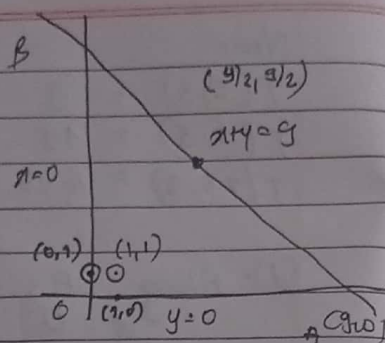 B
(9/2, 9/2)
x+y=9
x=0
(0,1) (1,1)
0 (1,0) y=0
A (9,0)